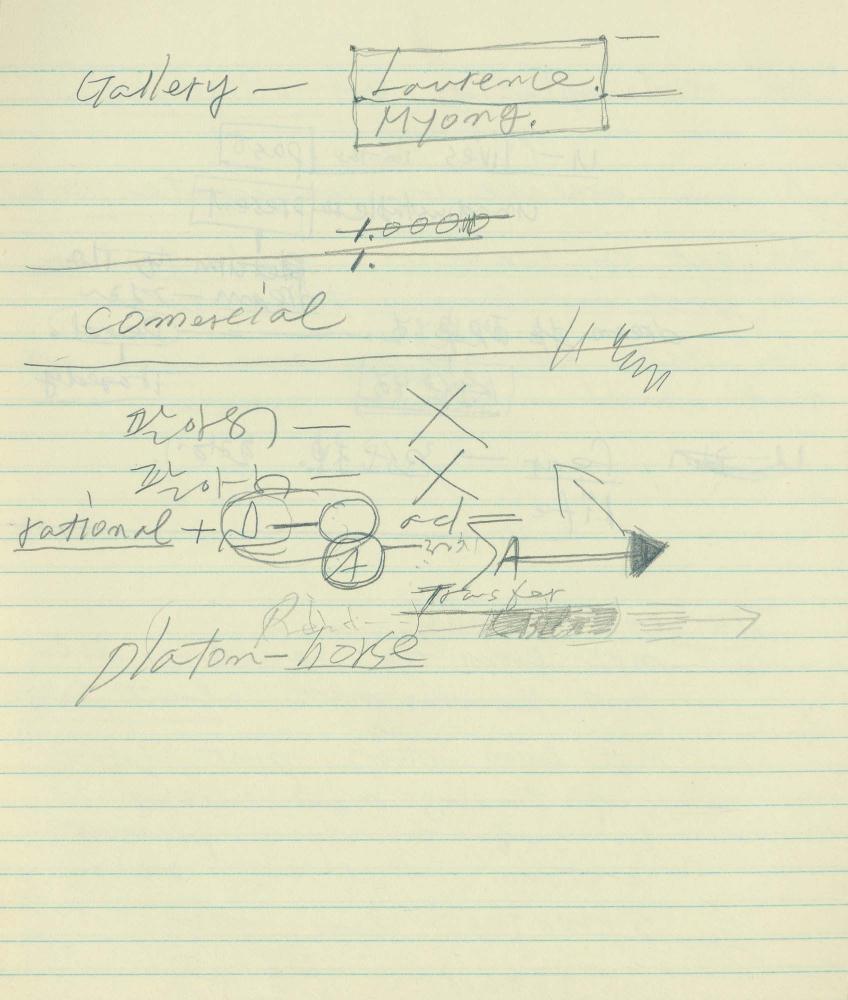 Gallery — Laurence.
Myong.
1.0000
1.
comercial
팔아
팔아
rational + D —
A
ad =
A
Transfer
platon-horse